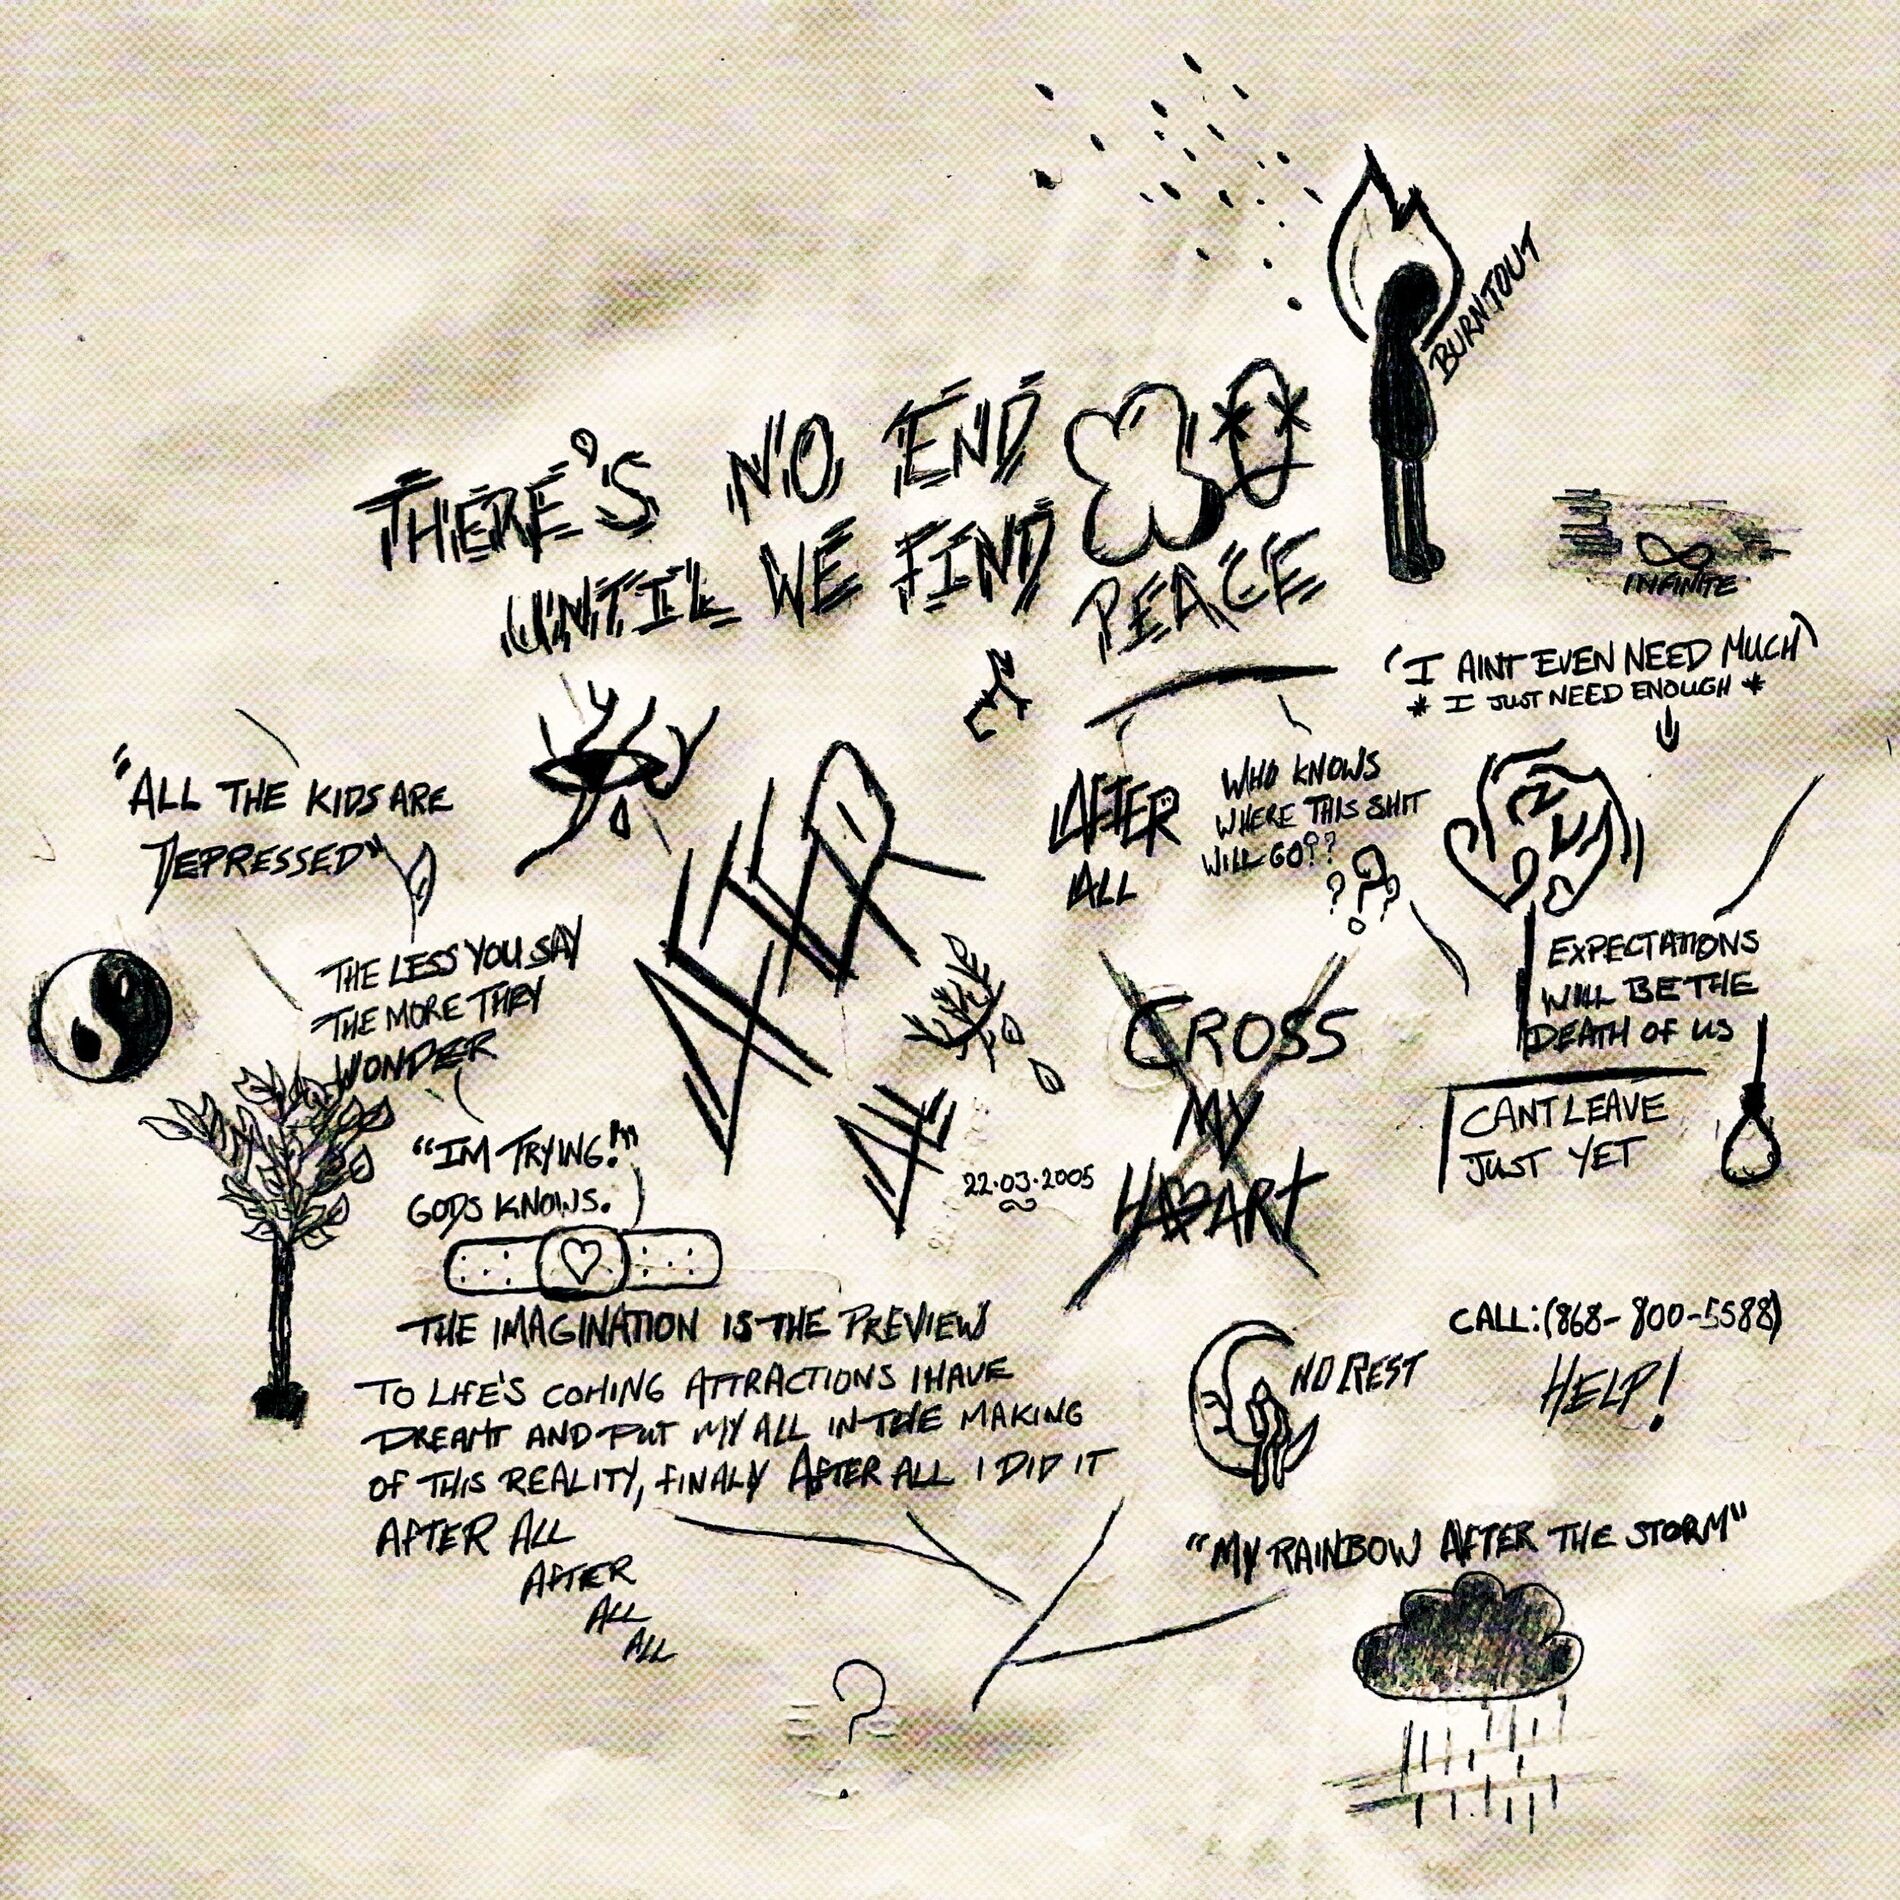 BURNTOUT
THERE'S NO END
UNTIL WE FIND
PEACE
INFINITE
"I AINT EVEN NEED MUCH"
* I JUST NEED ENOUGH *
"ALL THE KIDS ARE
DEPRESSED"
AFTER
ALL
WHO KNOWS
WHERE THIS SHIT
WILL GO??
???
THE LESS YOU SAY
THE MORE THEY
WONDER
EXPECTATIONS
WILL BE THE
DEATH OF US
CROSS
MY
HEART
CANT LEAVE
JUST YET
"IM TRYING!"
GODS KNOWS.
22.03.2005
THE IMAGINATION IS THE PREVIEW
TO LIFE'S COMING ATTRACTIONS I HAVE
DREAMT AND PUT MY ALL IN THE MAKING
OF THIS REALITY, FINALY AFTER ALL I DID IT
AFTER ALL
AFTER
ALL
ALL
CALL: (868-800-5588)
HELP!
NO REST
"MY RAINBOW AFTER THE STORM"
?